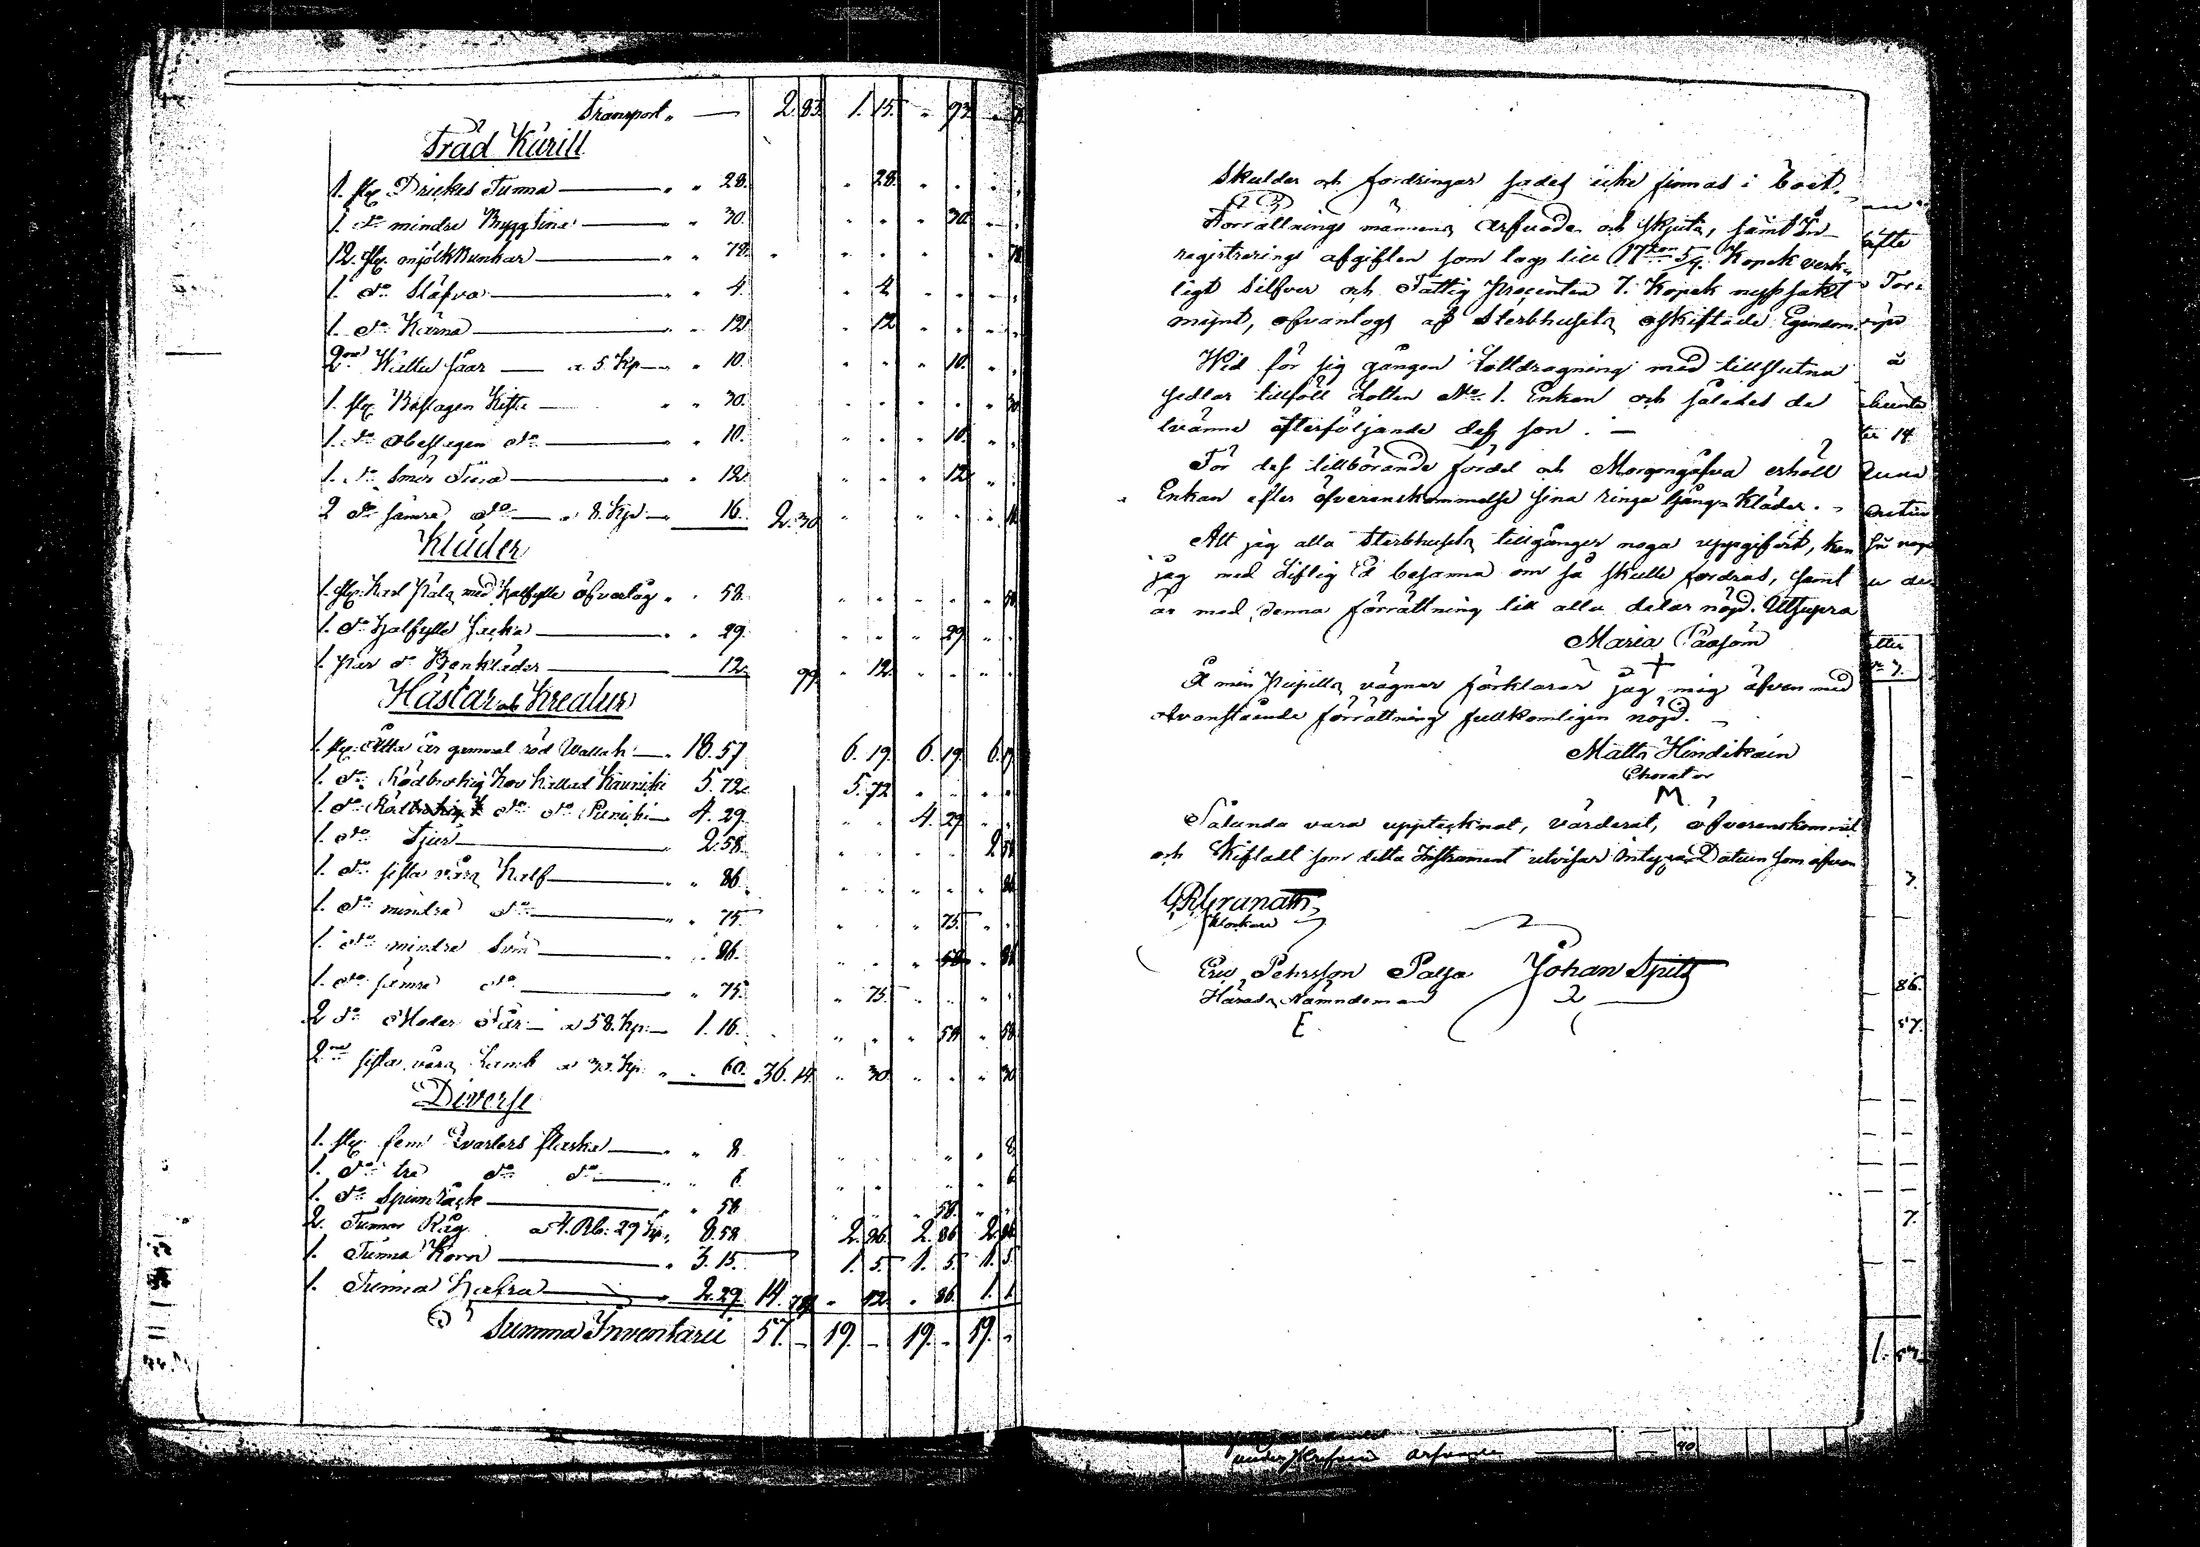 Transport „ — 2. 83. 1. 15. „ 93.
Träd Kärill
1. st. Drickes Tunna — „ „ 28. „ 28. „ „
1. do mindre Bryggtina — „ „ 30. „ „ „ 30.
12. st. mjölk Bunkar — „ „ 72. „ „ „ „
1. do Stäfva — „ „ 4. „ 4. „ „
1. do Kärna — „ „ 12. „ 12. „ „
2ne Wattu såar — a 5. Kp — „ 10. „ „ „ 10.
1. st. Beslagen Kista — „ „ 30. „ „ „ „ 30
1. do obeslagen do — „ „ 10. „ „ „ 10.
1. do Smör Tiina — „ „ 12. „ „ „ 12
2 do sämre do — a 8. Kp — 16. 2. 30. „ „ „ „
Kläder
1. st. Karl Päls med Kalfylle öfverlag „ „ 58. „ „ „ „ 58
1. do Halfylle Jacka — „ „ 29. „ „ „ 29. „
1. Par do Benkläder — 12. 99. „ 12. „ „
Hästar och Kreatur
1. st. Åtta år gammal röd Wallach — 18. 57. 6. 19. 6. 19. 6. 19
1. do Rödbrokig Ko kallad Kaunicki 5. 72. 5. 72. „ „
1. do do do Punicki — 4. 29. „ „ 4. 29. „
1. do Tjur — 2. 58. „ „ „ „ 2. 58
1. do sista våra Kalf — „ 86. „ „ „ „ 86
1. do mindre do — „ 75. „ „ „ 75. „
1. do mindre Svin — „ 86. „ „ „ „ 86
1. do sämre do — „ 75. „ 75. „ „
2 do Moder Får — a 58. Kp. — 1. 16. „ „ „ 58. „ 58
2ne sista våra Lamb a 30. Kp. „ „ 60. 36. 14. „ 30. „ „ „ 30
Diverse
1. st. fem Qvarters flaska — „ 8 „ „ „ „ 8
1. do tre do do — „ 6 „ „ „ „ 6
1. do Spinnräck — „ 58 „ „ „ 58. „
2. Tunnor Råg a 4. Rb. 29 Kp. „ 8. 58 2. 86. 2. 86 2. 86
1. Tunna Korn — 3. 15. 1. 5. 1. 5. 1. 5.
1. Tunna Hafra — 2. 29. 14. „ 12. „ 86. 1.
Summa Inventarii 57. — 19. — 19. — 19. —
Skulder och fordringar sades icke finnas i Boet.
Förrättnings männens Arfvode och Skjuts, samt In-
registrerings afgiften som togs till 17 Kopek verk-
ligt Silfver och Fattig procenten 7. Kopek nysssakt
mynt, ofvantogs af Sterbhusets oskiftade Egendom.
Wid för sig gången Lottdragning med tillslutna
sedlar tillföll Lotten No 1. Enkan och således de
tvänne efterföljande dess son. —
För dess tillbörande fördel och Morgongåfva erhöll
Enkan efter öfverenskommelse sina ringa Gångs Kläder. —
Att jag alla Sterbhusets tillgångar noga uppgifvit, kan
jag med Liflig Ed besanna om så skulle fordras, samt
är med denna förrättning till alla delar nöjd. Utsupra
Maria Paasoin
+
Å min Pupills vägnar förklarar jag mig äfven med
ofvanstående förrättning fullkomligen nöjd. —
Matts Hindikain
Curator
M.
Sålunda vara upptecknat, värderat, öfverenskommit
och Skiftadt som detta Instrument utvisar intygar Datum som ofvan
GRGranath
Klockare
Eric Pehrsson Palja Johan Spets
Härads Nämndeman
E.